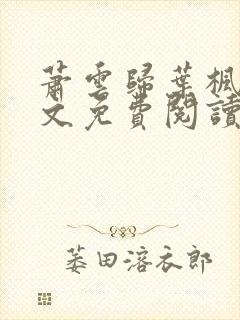 蕭雲歸葉楓
文免費閱讀
蒌田溶衣郎